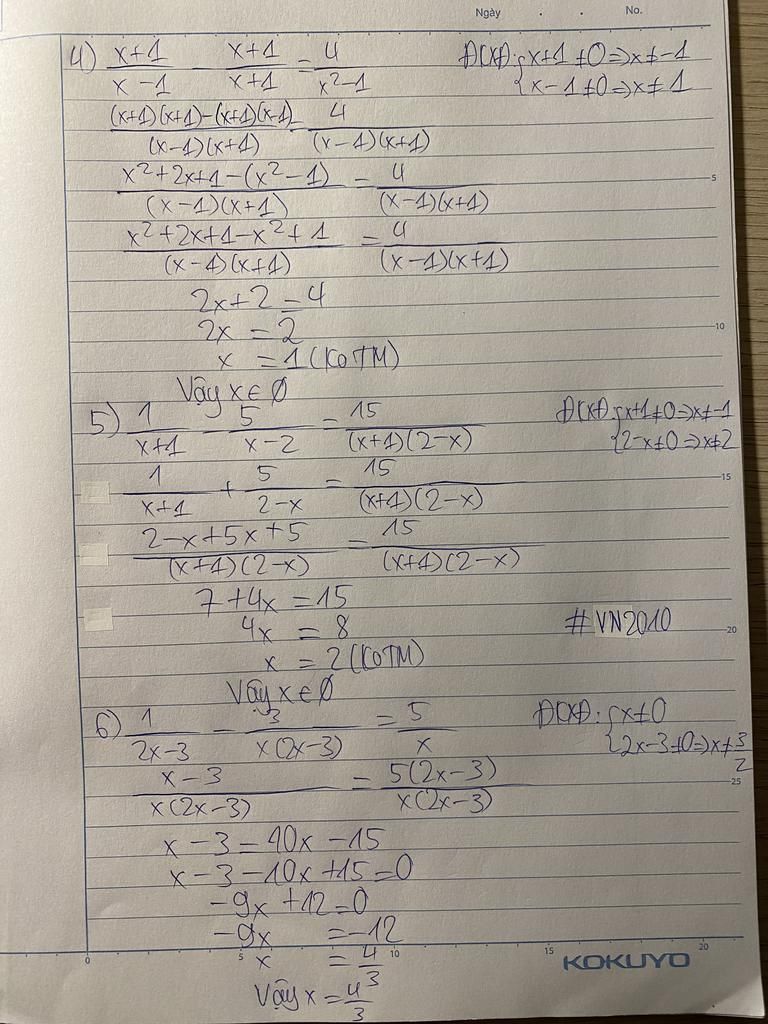 Ngày . . No.
4) \frac{x+1}{x-1} - \frac{x+1}{x+1} = \frac{4}{x²-1} ĐKXĐ: { x+1≠0 => x≠-1
{ x-1≠0 => x≠1
\frac{(x+1)(x+1)-(x+1)(x-1)}{(x-1)(x+1)} = \frac{4}{(x-1)(x+1)}
\frac{x²+2x+1-(x²-1)}{(x-1)(x+1)} = \frac{4}{(x-1)(x+1)}
\frac{x²+2x+1-x²+1}{(x-1)(x+1)} = \frac{4}{(x-1)(x+1)}
2x+2 = 4
2x = 2
x = 1 (KoTM)
Vậy x ∈ Ø
5) \frac{1}{x+1} - \frac{5}{x-2} = \frac{15}{(x+1)(2-x)} ĐKXĐ: { x+1≠0 => x≠-1
{ 2-x≠0 => x≠2
\frac{1}{x+1} + \frac{5}{2-x} = \frac{15}{(x+1)(2-x)}
\frac{2-x+5x+5}{(x+1)(2-x)} = \frac{15}{(x+1)(2-x)}
7+4x = 15
4x = 8 # VN2010
x = 2 (KoTM)
Vậy x ∈ Ø
6) \frac{1}{2x-3} - \frac{3}{x(2x-3)} = \frac{5}{x} ĐKXĐ: { x≠0
{ 2x-3≠0 => x≠\frac{3}{2}
\frac{x-3}{x(2x-3)} = \frac{5(2x-3)}{x(2x-3)}
x-3 = 10x-15
x-3-10x+15 = 0
-9x+12 = 0
-9x = -12
x = \frac{4}{3}
Vậy x = \frac{4}{3}
5
10
15
20
25
0 5 10 15 20
KOKUYO